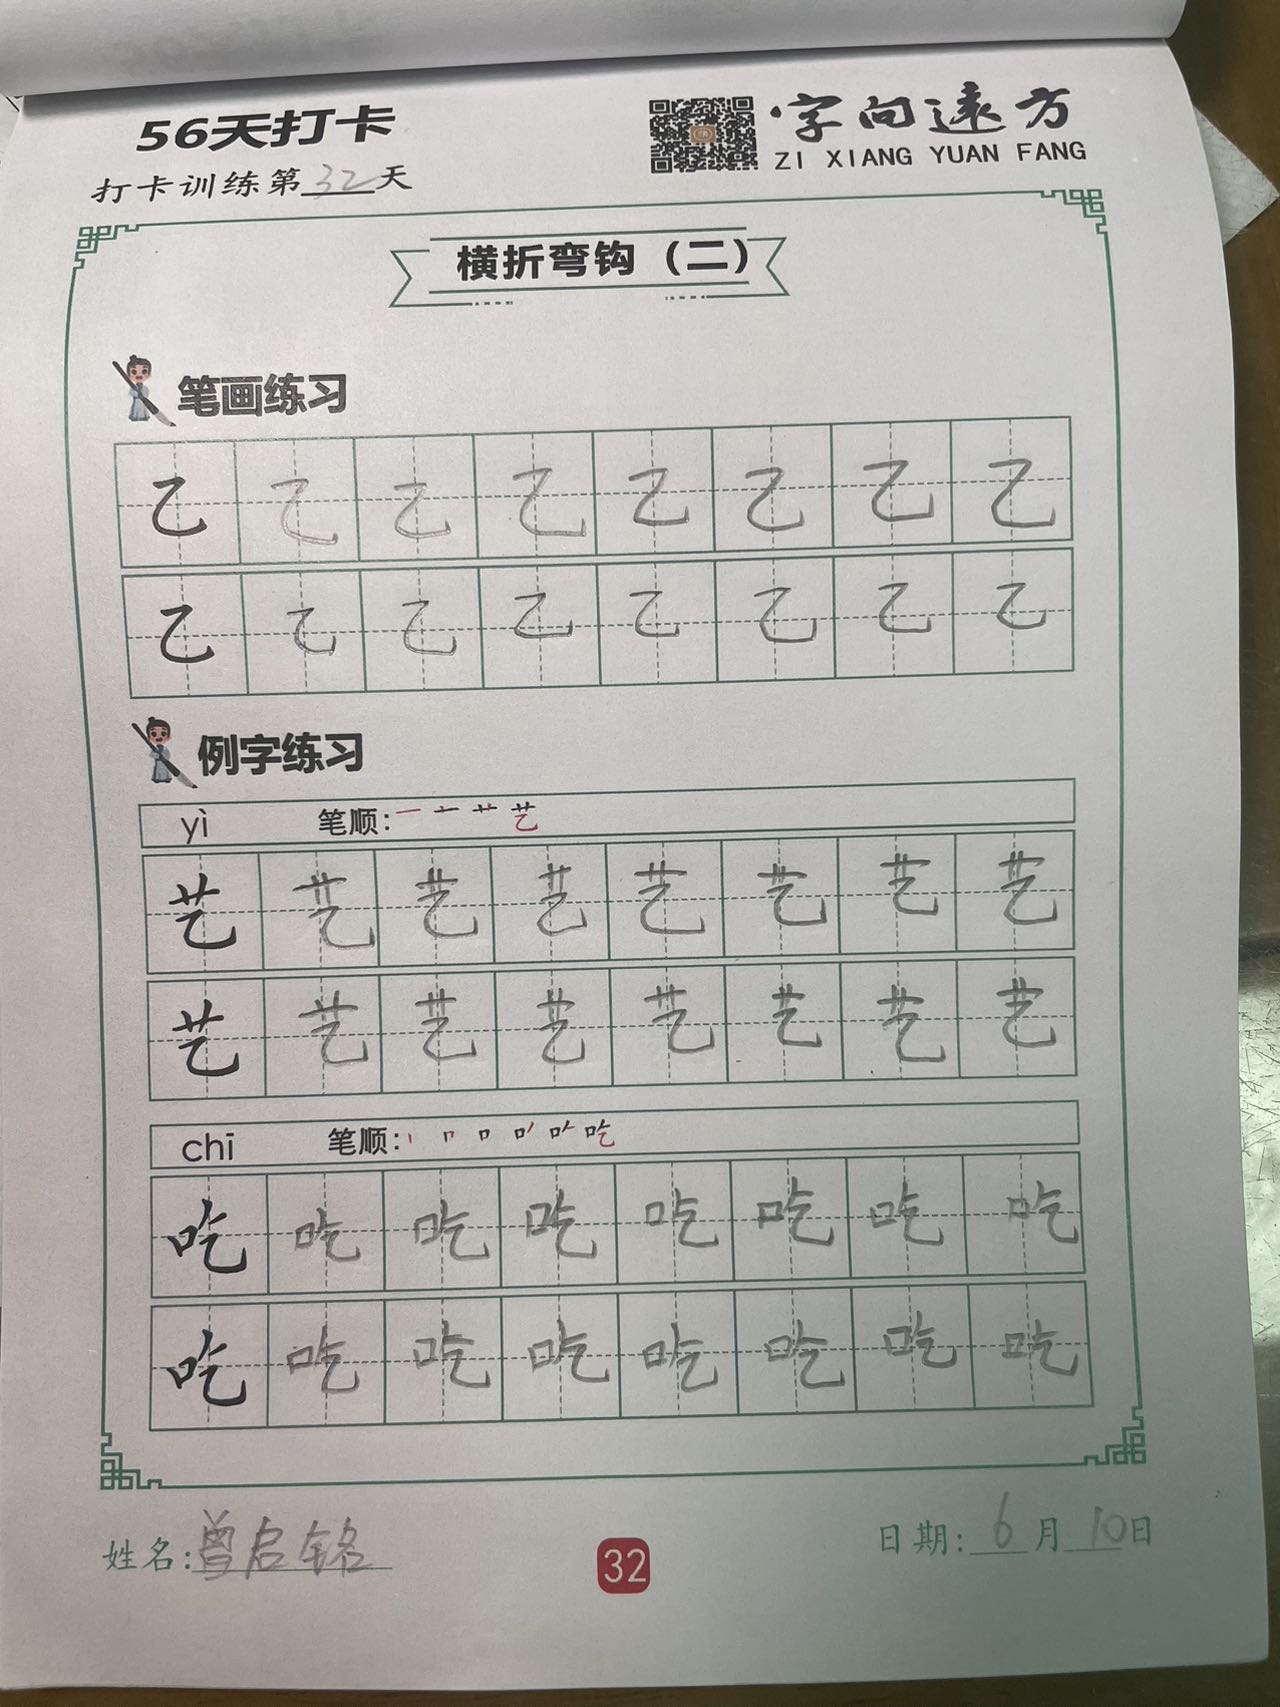 56天打卡
字向远方
ZI XIANG YUAN FANG
打卡训练第32天
横折弯钩（二）
笔画练习
乙乙乙乙乙乙乙乙
乙乙乙乙乙乙乙乙
例字练习
yì 笔顺：一 十 艹 艺
艺艺艺艺艺艺艺艺
艺艺艺艺艺艺艺艺
chī 笔顺：丨 口 吃
吃吃吃吃吃吃吃吃
吃吃吃吃吃吃吃吃
姓名：曾启铭
32
日期：6月10日